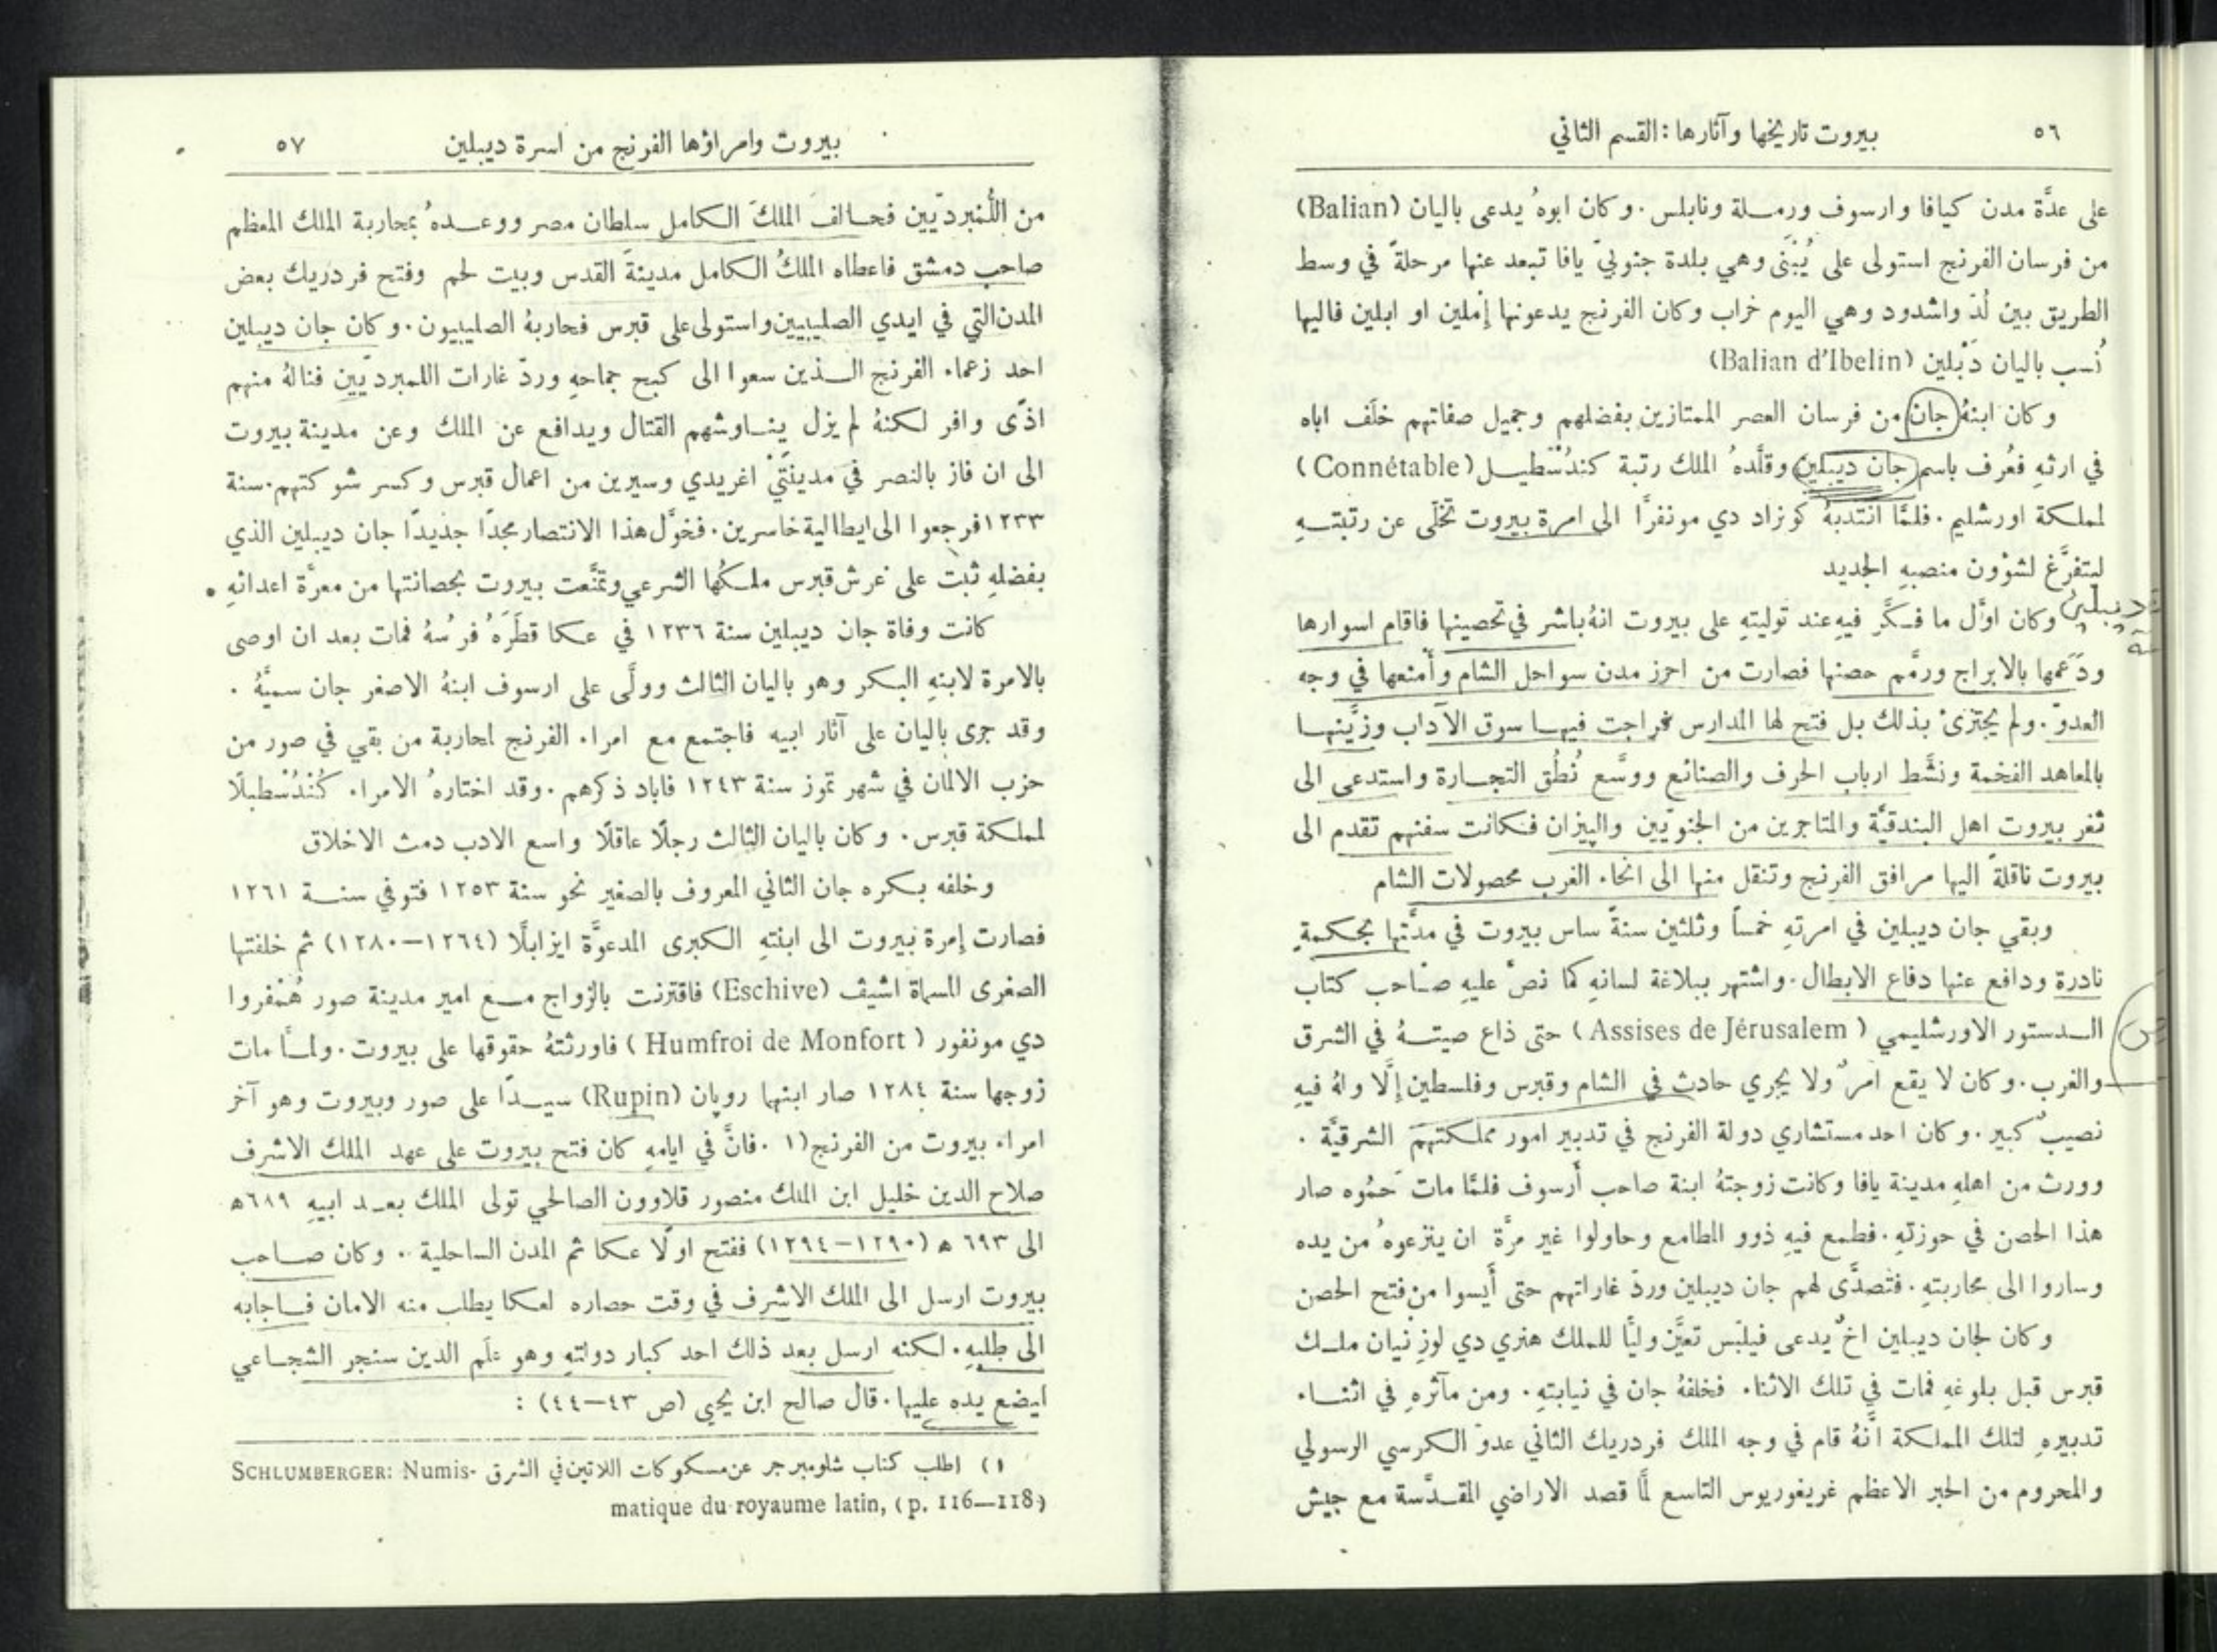 ٥٦
بيروت تاريخها وآثارها : القسم الثاني
على عدَّة مدن كيافا وارسوف ورمــلة ونابلس . وكان ابوهُ يدعى باليان (Balian)
من فرسان الفرنج استولى على يُبْنَى وهي بلدة جنوبيّ يافا تبعد عنها مرحلةً في وسط
الطريق بين لُدّ واشدود وهي اليوم خراب وكان الفرنج يدعونها إمْلين او ابلين فاليها
نُسب باليان دَبْلين (Balian d'Ibelin)
وكان ابنهُ جان من فرسان العصر الممتازين بفضلهم وجميل صفاتهم خلَف اباه
في ارثهِ فعُرف باسم جان ديبلين وقلَّدهُ الملك رتبة كندُسْطيــل (Connétable)
لمملكة اورشليم . فلمَّا انتدبهُ كونراد دي مونفرَّا الى امرة بيروت تخلّى عن رتبتــهِ
ليتفرَّغ لشؤون منصبهِ الجديد
ديبلين
وكان اوَّل ما فــكَّر فيهِ عند توليتهِ على بيروت انهُ باشر في تحصينها فاقام اسوارها
ودَعَمها بالابراج ورمَّم حصنها فصارت من احرز مدن سواحل الشام وأَمنعها في وجه
العدوّ . ولم يجتزئ بذلك بل فتح لها المدارس فراجت فيهــا سوق الآداب وزيَّنهــا
بالمعاهد الفخمة ونشَّط ارباب الحرف والصنائع ووسَّع نُطُق التجــارة واستدعى الى
ثغر بيروت اهل البندقيَّة والمتاجرين من الجنويّين والپيزان فــكانت سفنهم تقدم الى
بيروت ناقلةً اليها مرافق الفرنج وتنقل منها الى انحاء الغرب محصولات الشام
وبقي جان ديبلين في امرتهِ خمساً وثلثين سنةً ساس بيروت في مدَّتها بحكمةٍ
نادرة ودافع عنها دفاع الابطال . واشتهر ببلاغة لسانهِ كما نصّ عليهِ صــاحب كتاب
الــدستور الاورشليمي (Assises de Jérusalem) حتى ذاع صيتــهُ في الشرق
والغرب . وكان لا يقع امرٌ ولا يجري حادث في الشام وقبرس وفلسطين إلَّا ولهُ فيهِ
نصيبٌ كبير . وكان احد مستشاري دولة الفرنج في تدبير امور مملكتهم الشرقيَّة .
وورث من اهلهِ مدينة يافا وكانت زوجتهُ ابنة صاحب أرسوف فلمَّا مات حَمُوه صار
هذا الحصن في حوزتهِ . فطمع فيهِ ذوو المطامع وحاولوا غير مرَّة ان ينزعوهُ من يده
وساروا الى محاربتهِ . فتصدَّى لهم جان ديبلين وردّ غاراتهم حتى أَيسوا من فتح الحصن
وكان لجان ديبلين اخٌ يدعى فيلبّس تعيَّن وليًّا للملك هنري دي لوزِنيان ملــك
قبرس قبل بلوغهِ فمات في تلك الاثناء . فخلفهُ جان في نيابتهِ . ومن مآثرهِ في اثنــاء
تدبيرهِ لتلك المملكة انَّهُ قام في وجه الملك فردريك الثاني عدوّ الكرسي الرسولي
والمحروم من الحبر الاعظم غريغوريوس التاسع لمَّا قصد الاراضي المقــدَّسة مع جيش
بيروت وامراؤها الفرنج من اسرة ديبلين
٥٧
من اللُّنبرديّين فحــالف الملكَ الــكامل سلطان مصر ووعــدهُ بمحاربة الملك المعظم
صاحب دمشق فاعطاه الملكُ الــكامل مدينةَ القدس وبيت لحم وفتح فردريك بعض
المدن التي في ايدي الصليبيين واستولى على قبرس فحاربهُ الصليبيون . وكان جان ديبلين
احد زعماء الفرنج الــذين سعوا الى كبح جماحهِ وردّ غارات اللمبرديّين فنالهُ منهم
اذًى وافر لكنهُ لم يزل ينــاوشهم القتال ويدافع عن الملك وعن مدينة بيروت
الى ان فاز بالنصر في مدينتَيْ اغريدي وسيرين من اعمال قبرس وكسر شوكتهم . سنة
١٢٣٣ فرجعوا الى ايطالية خاسرين . فخوَّل هذا الانتصار مجدًا جديدًا جان ديبلين الذي
بفضلهِ ثبت على عرش قبرس ملــكُها الشرعي وتمنَّعت بيروت بحصانتها من معرَّة اعدائهِ .
كانت وفاة جان ديبلين سنة ١٢٣٦ في عــكا قطَرَهُ فرسُهُ فمات بعد ان اوصى
بالامرة لابنهِ البــكر وهو باليان الثالث وولَّى على ارسوف ابنهُ الاصغر جان سميَّهُ .
وقد جرى باليان على آثار ابيه فاجتمع مع امراء الفرنج لمحاربة من بقي في صور من
حزب الالمان في شهر تموز سنة ١٢٤٣ فاباد ذكرهم . وقد اختارهُ الامراء كُنْدُسْطبلًا
لمملكة قبرس . وكان باليان الثالث رجلًا عاقلًا واسع الادب دمث الاخلاق
وخلفه بــكره جان الثاني المعروف بالصغير نحو سنة ١٢٥٣ فتوفي سنــة ١٢٦١
فصارت إمرة بيروت الى ابنتهِ الــكبرى المدعوَّة ايزابلَّا (١٢٦٤-١٢٨٠) ثم خلفتها
الصغرى المسماة اشيڤ (Eschive) فاقترنت بالزواج مــع امير مدينة صور هُمْفروا
دي مونفور (Humfroi de Monfort) فاورثتهُ حقوقها على بيروت . ولمــا مات
زوجها سنة ١٢٨٤ صار ابنها روپان (Rupin) سيــدًا على صور وبيروت وهو آخر
امراء بيروت من الفرنج (١ . فانَّ في ايامهِ كان فتح بيروت على عهد الملك الاشرف
صلاح الدين خليل ابن الملك منصور قلاوون الصالحي تولى الملك بعــد ابيهِ ٦٨٩ ه
الى ٦٩٣ ه (١٢٩٠-١٢٩٤) ففتح اولًا عــكا ثم المدن الساحلية . وكان صــاحب
بيروت ارسل الى الملك الاشرف في وقت حصاره لعكا يطلب منه الامان فــاجابه
الى طلبهِ . لــكنه ارسل بعد ذلك احد كبار دولتهِ وهو علَم الدين سنجر الشجــاعي
ليضع يده عليها . قال صالح ابن يحيى (ص ٤٣-٤٤) :
١) اطلب كتاب شلومبرجر عن مسكوكات اللاتين في الشرق SCHLUMBERGER: Numis-
matique du royaume latin, (p. 116—118)